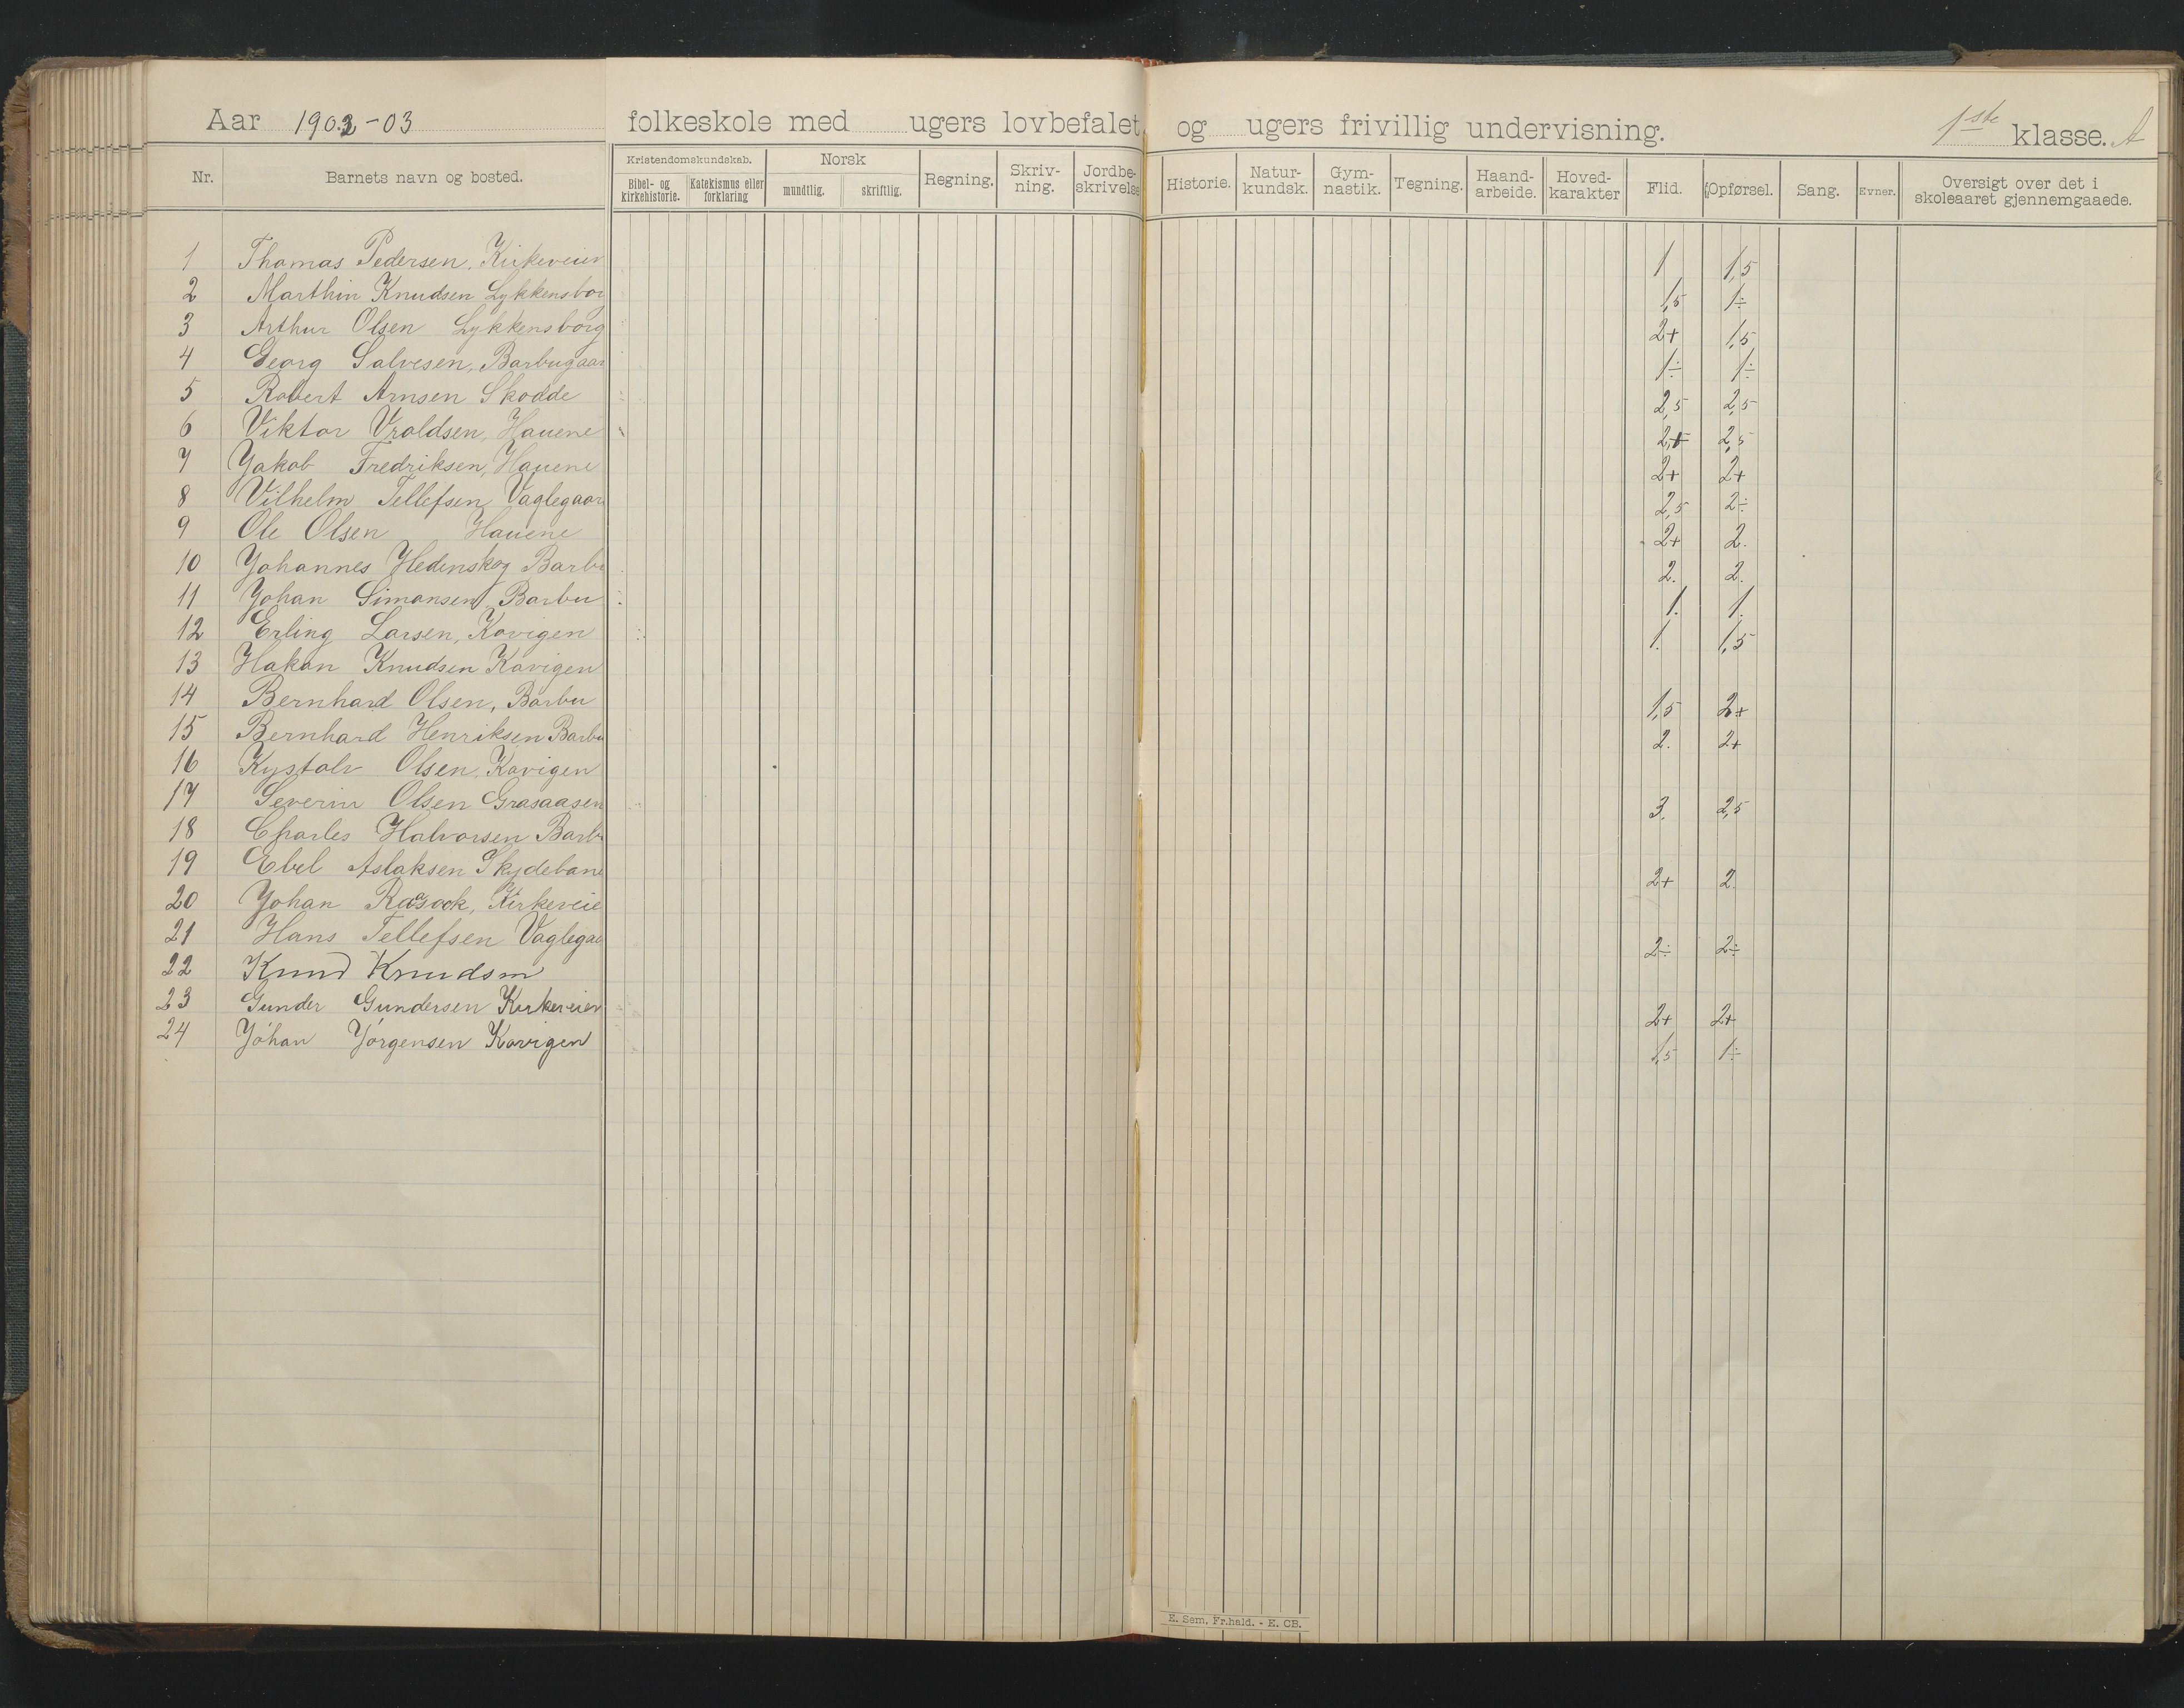 Aar 1902-03 folkeskole med ugers lovbefalet og ugers frivillig undervisning. 1ste klasse. A
Nr. Barnets navn og bosted. Kristendomskundskab. Bibel- og kirkehistorie. Katekismus eller forklaring Norsk mundtlig. skriftlig. Regning. Skriv-ning. Jordbe-skrivelse Historie. Natur-kundsk. Gym-nastik. Tegning. Haand-arbeide. Hoved-karakter Flid. Opførsel. Sang. Evner. Oversigt over det i skoleaaret gjennemgaaede.
1 Thomas Pedersen, Kirkeveien 1 1,5
2 Marthin Knudsen Lykkensborg 1,5 1÷
3 Arthur Olsen Lykkensborg 2+ 1,5
4 Georg Salvesen, Barbugaar 1÷ 1÷
5 Robert Arnsen Skodde 2,5 2,5
6 Viktor Vroldsen, Hauene 2+ 2,5
7 Yakob Fredriksen, Hauene 2+ 2+
8 Vilhelm Tellefsen Vaglegaar 2,5 2÷
9 Ole Olsen Hauene 2+ 2.
10 Yohannes Hedenskog Barbu 2. 2.
11 Yohan Simonsen Barbu 1. 1.
12 Erling Larsen, Kovigen 1. 1,5
13 Hakon Knudsen Kovigen
14 Bernhard Olsen, Barbu 1,5 2+
15 Bernhard Henriksen Barbu 2. 2+
16 Kystolv Olsen, Kovigen
17 Severin Olsen Grasaasen 3. 2,5
18 Charles Halvorsen Barbu
19 Ebel Aslaksen Skydebane 2+ 2.
20 Yohan Kirkeveie
21 Hans Tellefsen Vaglegaa 2÷ 2÷
22 Knud Knudsen
23 Gunder Gundersen Kirkeveien 2+ 2+
24 Yohan Yörgensen Kovigen 1,5 1÷
E. Sem, Fr.hald. - E. CB.